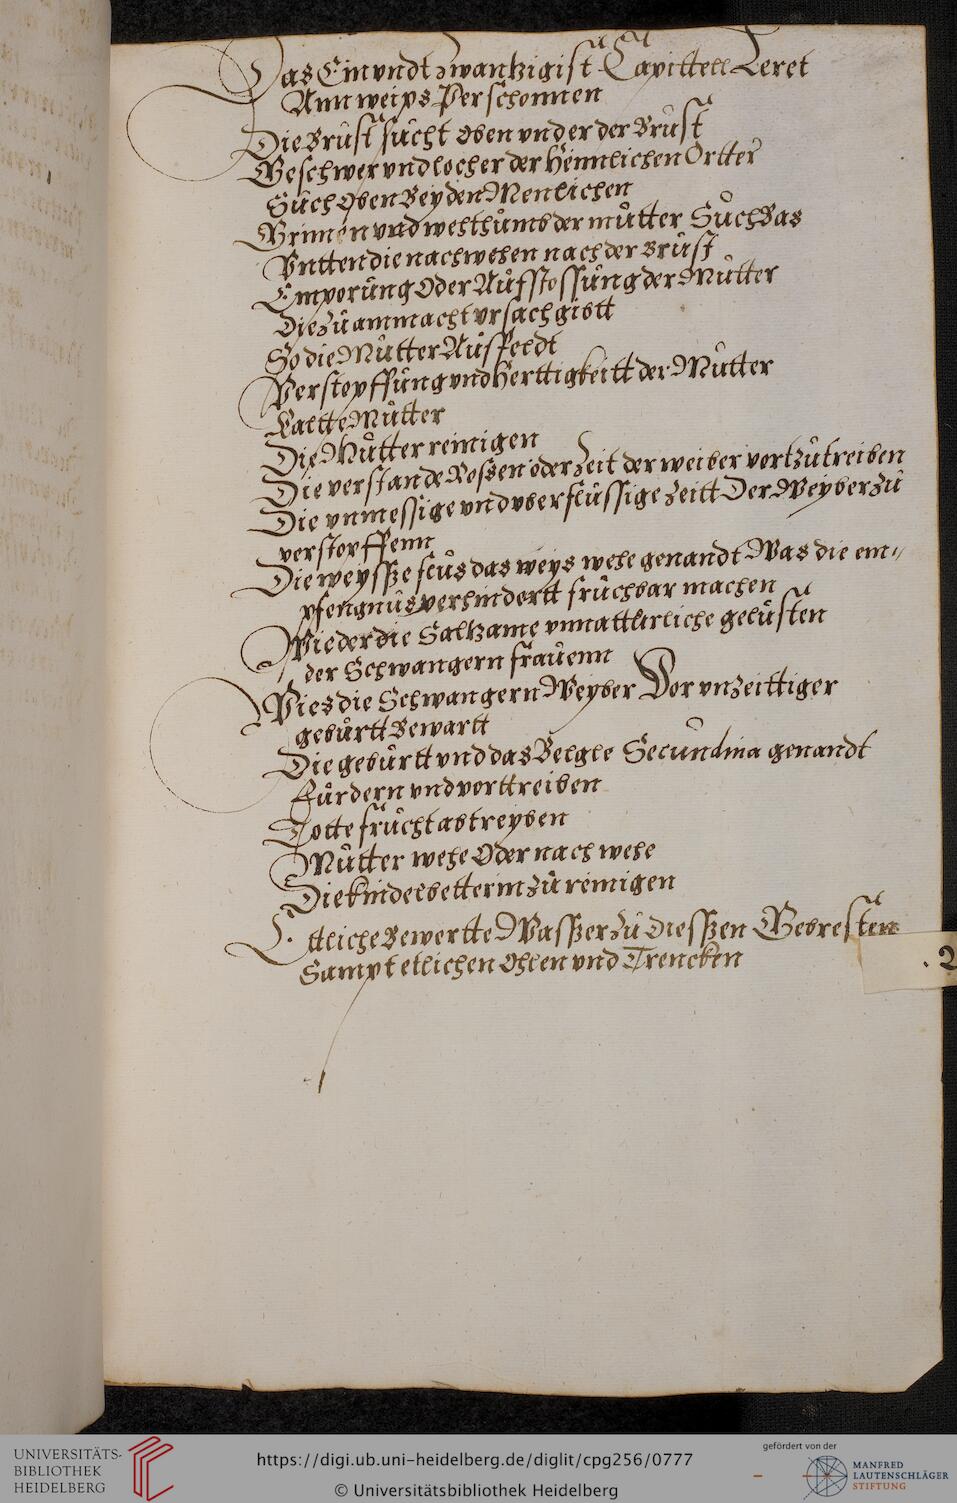 Das Ein vndt zwantzigist Capittell Leret
Ann weips Perschonnen
Die Brŭst sŭcht oben vnder der Brŭst
Geschwer vnd locher der Heimlichen Ortter
Sŭch Oben Bey den Menlichen
Grimen vnd wehthŭmb der mŭtter Sŭch Bas
Vntten die nachwehen nach der Brŭst
Emporŭng Oder Aŭfstossŭng der Mŭtter
Die zŭ ammacht vrsach gibtt
So die Mŭtter Aŭsfeldt
Verstopffŭng vnd Herttigkeitt der Mŭtter
Kaltte Mŭtter
Die Mŭtter reinigen
Die verstande Roßen oder Zeit der weiber vortzŭtreiben
Die vnmessige vnd vberflŭssige zeitt Der Weyber zŭ
verstopffenn
Die weysße flŭs das weys wehe genandt Was die em-
pfengnŭs verhindertt frŭchbar machen
Wieder die Saltzame vnnattŭrliche gelŭsten
der Schwangern fraŭenn
Wies die Schwangern Weyber Vor vnzeittiger
gebŭrtt Bewartt
Die gebŭrtt vnd das Belgle Secŭndina genandt
Fŭrdern vnd vorttreiben
Totte frŭcht abtreyben
Mŭtter wehe Oder nach wehe
Die kindelbetterin zŭ reinigen
Ettliche Bewertte Waßßer zŭ dießßen Gebresten
Sampt etlichen Ohlen vnd Trencken
. 2
UNIVERSITÄTS-
BIBLIOTHEK
HEIDELBERG
https://digi.ub.uni-heidelberg.de/diglit/cpg256/0777
© Universitätsbibliothek Heidelberg
gefördert von der
MANFRED
LAUTENSCHLÄGER
STIFTUNG